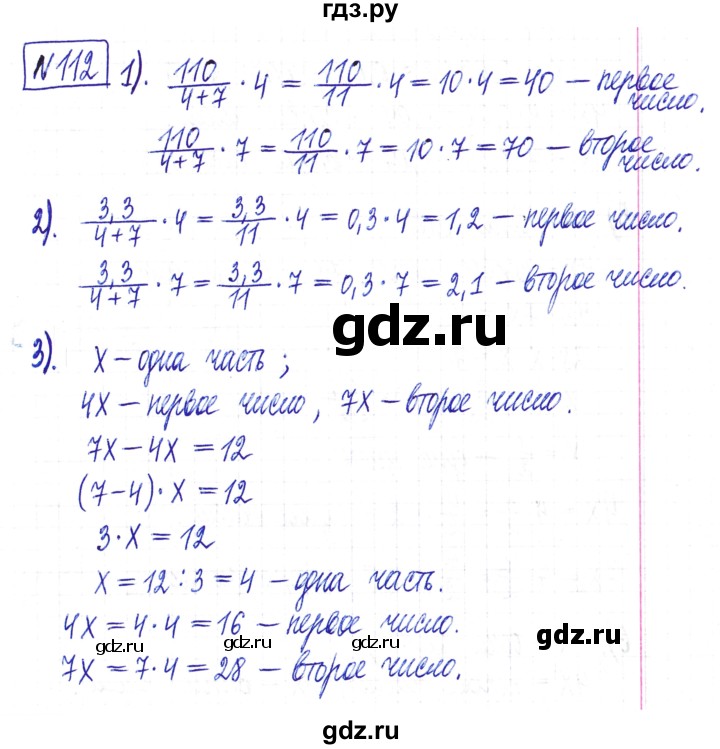 гдз.ру
№112 1). 110/(4+7) · 4 = 110/11 · 4 = 10 · 4 = 40 – первое число.
110/(4+7) · 7 = 110/11 · 7 = 10 · 7 = 70 – второе число.
2). 3,3/(4+7) · 4 = 3,3/11 · 4 = 0,3 · 4 = 1,2 – первое число.
3,3/(4+7) · 7 = 3,3/11 · 7 = 0,3 · 7 = 2,1 – второе число.
gdz.ru
3). x – одна часть;
4x – первое число, 7x – второе число.
7x – 4x = 12
(7–4) · x = 12
3 · x = 12
x = 12 : 3 = 4 – одна часть.
4x = 4 · 4 = 16 – первое число.
gdz.ru gdz.ru gdz.ru
7x = 7 · 4 = 28 – второе число.
gdz.ru